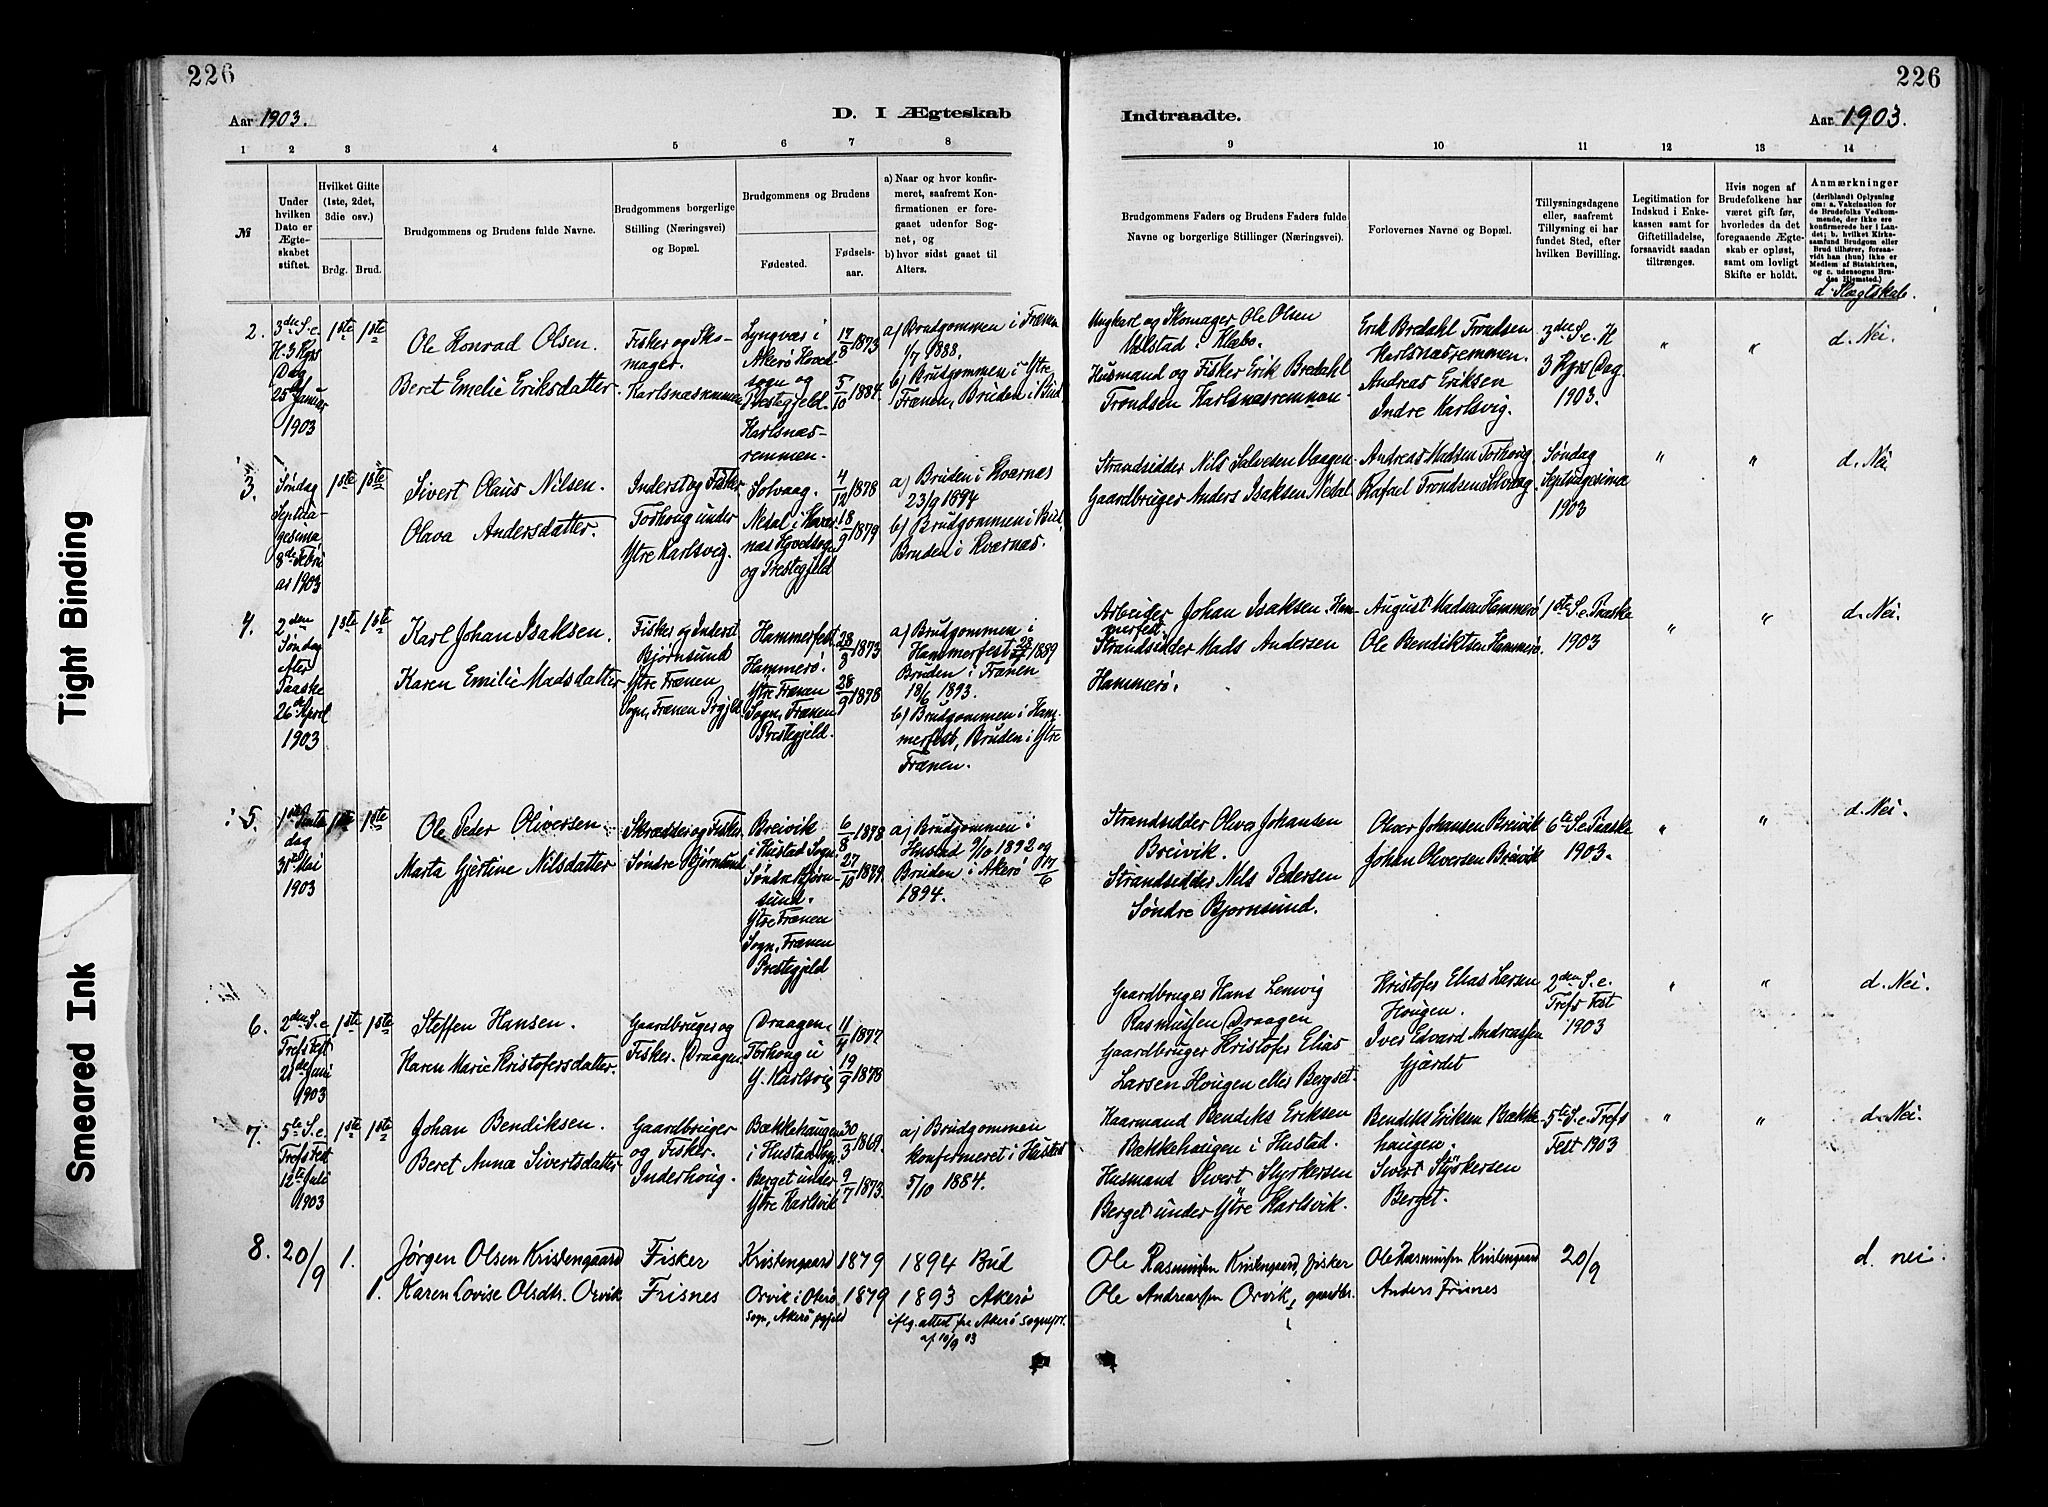 226
Aar 1903.
D. I Ægteskab
1 2 3 4 5 6 7 8
№
Under hvilken Dato er Ægteskabet stiftet.
Hvilket Gifte (1ste, 2det, 3die osv.)
Brdg. Brud.
Brudgommens og Brudens fulde Navne.
Brudgommens borgerlige Stilling (Næringsvei) og Bopæl.
Brudgommens og Brudens
Fødested.
Fødselsaar.
a) Naar og hvor konfirmeret, saafremt Konfirmationen er foregaaet udenfor Sognet, og
b) hvor sidst gaaet til Alters.
2.
3den S. e.
H. 3 Kgrs
Dag
25de Januar
1903
1ste 1ste
Ole Konrad Olsen.
Beret Emelie Eriksdatter.
Fisker og Sko-
mager.
Karlsnæsremmen
Lyngvær i
Akerø Hoved
sogn og
Prestegjeld.
Karlsnæs-
remmen.
17/8 1873
5/10 1884.
a) Brudgommen i Frænen
1/7 1888.
b) Brudgommen i Ytre
Frænen, Bruden i Bud
3.
Søndag
Septua-
gesima
8de Febru
ar 1903
1ste 1ste
Sivert Olaus Nilsen.
Olava Andersdatter.
Inderst og Fisker
Torhoug under
Ytre Karlsvig.
Solvaag.
Nedal i Kvær-
næs Hovedsogn
og Prestegjeld
4/12 1878
18/9 1879
a) Bruden i Kværnæs
23/9 1894
b) Brudgommen i Bud,
Bruden i Kværnæs.
4.
2den
Søndag
efter
Paaske
26de April
1903
1ste 1ste
Karl Johan Isaksen.
Karen Emilie Madsdatter
Fisker og Inderst
Bjørnsund
Ytre Frænen
Sogn, Frænen Prgjld
Hammerfest
Hammerø.
Ytre Frænen
Sogn, Frænen
Prestegjeld.
28/8 1873
28/9 1878
a) Brudgommen i
Hammerfest 1889
Bruden i Frænen
18/6 1893.
b) Brudgommen i Ham-
merfest, Bruden i Ytre
Frænen.
5.
1ste Pintse
dag
31te Mai
1903
1ste 1ste
Ole Peder Oliversen.
Marta Gjertine Nilsdatter
Skrædder og Fisker
Søndre Bjørnsund
Breivik
i Hustad Sogn.
Søndre Bjørn-
sund.
Ytre Frænen
Sogn, Frænen
Prestegjeld
6/8 1878
27/10 1879
a) Brudgommen i
Hustad 9/10 1892 og
Bruden i Akerø 17/6
1894.
6.
2den S. e
Trefs Fest
21de Juni
1903
1ste 1ste
Steffen Hansen.
Karen Marie Kristofersdatter.
Gaardbruger og
Fisker. Draagen.
Draagen.
Torhoug u
Y. Karlsvig
11/4 1877
19/9 1878
7.
5te S. e.
Trefs Fest
12te Juli
1903
1ste 1ste
Johan Bendiksen.
Beret Anna Sivertsdatter
Gaardbruger
og Fisker.
Inderhoug.
Bækkehaugen
i Hustad Sogn.
Berget under
Ytre Karlsvik
30/3 1869.
9/7 1873.
a) Brudgommen
konfirmeret i Hustad
5/10 1884.
8.
20/9 1. 1.
Jørgen Olsen Kristengaard
Karen Lovise Olsdtr. Orvik
Fisker
Frisnes
Kristengaard
Orvik i Oterø
sogn, Akerø pgjeld
1879
1879
1894 Bud
1893 Akerø
iflg. attest fra Akerø sognepr.
af 10/9 03
226
Indtraadte.
Aar 1903.
9 10 11 12 13 14
Brudgommens Faders og Brudens Faders fulde Navne og borgerlige Stillinger (Næringsvei).
Forlovernes Navne og Bopæl.
Tillysningsdagene eller, saafremt Tillysning ei har fundet Sted, efter hvilken Bevilling.
Legitimation for Indskud i Enkekassen samt for Giftetilladelse, forsaavidt saadan tiltrænges.
Hvis nogen af Brudefolkene har været gift før, hvorledes da det foregaaende Ægteskab er opløst, samt om lovligt Skifte er holdt.
Anmærkninger (deriblandt) Oplysning om: a. Vakcination for de Brudefolks Vedkommende, der ikke ere konfirmerede her i Landet; b. hvilket Kirkesamfund Brudgom eller Brud tilhører, forsaavidt han (hun) ikke er Medlem af Statskirken, og c. udensogns Brudes Hjemsted.)
d. Slægtskab.
Ungkarl og Skomager Ole Olsen
Ulstad i Klæbo.
Husmand og Fisker Erik Bredahl
Trondsen Karlsnæsremman.
Erik Bredahl Trondsen
Karlsnæsremmen.
Andreas Eriksen
Indre Karlsvig.
3den S. e. H
3 Kgrs Dag
1903.
" "
d. Nei.
Strandsidder Nils Salvesen Vaagen
Gaardbruger Anders Isaksen Nedal
Andreas Madsen Torhoug.
Rafael Trondsen Solvaag.
Søndag
Septuagesima
1903
" "
d. Nei
Arbeider Johan Isaksen. Ham-
merfest.
Strandsidder Mads Andersen
Hammerø.
August Madsen Hammerø
Ole Bendiktsen Hammerø.
1ste S. e. Paaske
1903
" "
d. Nei.
Strandsidder Oliver Johansen
Breivik.
Strandsidder Nils Pedersen
Søndre Bjørnsund.
Oliver Johansen Breivik
Johan Oliversen Breivik
6te S. e Paaske
1903.
" "
d. Nei.
Gaardbruger Hans Lemvig
Rasmussen Draagen
Gaardbruger Kristofer Elias
Larsen Hougen eller Bergset.
Kristofer Elias Larsen
Hougen.
Iver Edvard Andreassen
Gjærdet
2den S. e.
Trefs Fest
1903
" "
d. Nei.
Kaarmand Bendiks Eriksen
Bækkehaugen i Hustad.
Husmand Sivert Styrkersen
Berget under Ytre Karlsvik.
Bendiks Eriksen Bække-
haugen.
Sivert Styrkersen
Berget.
5te S. e. Trefs
Fest 1903
" "
d. Nei.
Ole Rasmussen Kristengaard, fisker
Ole Andreassen Orvik, gaardbr.
Ole Rasmussen Kristengaard
Anders Frisnes
20/9
d. nei.
Tight Binding
Smeared Ink